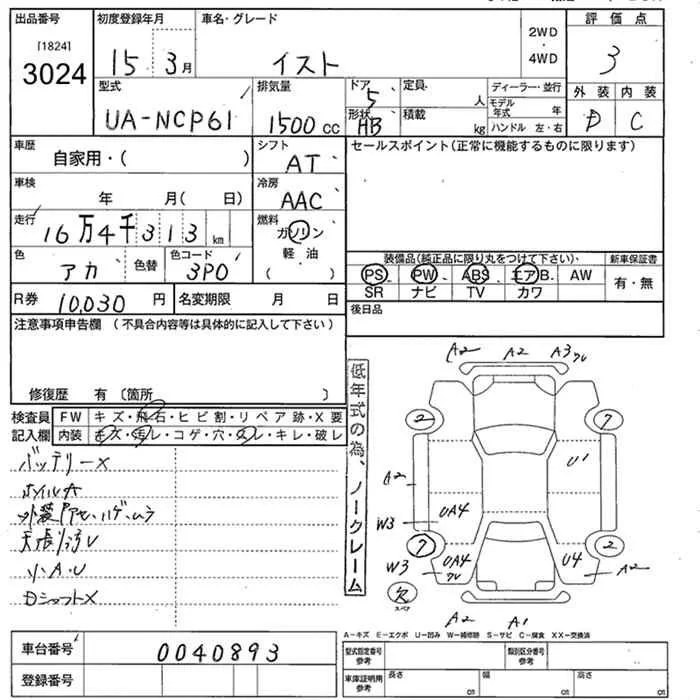 出品番号 初度登録年月 車名・グレード 評価点
[1824]
3024 15 3月 イスト 2WD・4WD 3
型式 排気量 ドア 定員 ディーラー・並行 外装 内装
UA-NCP61 1500cc 5 人 モデル年式 年 D C
形状 HB 積載 kg ハンドル 左・右
車歴 シフト セールスポイント(正常に機能するものに限ります)
自家用・( ) AT
車検 冷房
年 月( 日) AAC
走行 燃料
16万4千313km ガソリン
色 色替 色コード 軽・油
アカ 3P0 ( )
装備品(純正品に限り丸をつけて下さい) 新車保証書
PS PW ABS エアB. AW 有・無
SR ナビ TV カワ
R券 10,030円 名変期限 月 日
後日品
注意事項申告欄(不具合内容等は具体的に記入して下さい)
修復歴 有〔箇所 〕
検査員 FW キズ・飛石・ヒビ割・リペア跡・X要
記入欄 内装 キズ・汚レ・コゲ・穴・スレ・キレ・破レ
バッテリーX
ホイルA
天張リ汚レ
小A・U
DシャフトX
低年式の為、ノークレーム
A2 A2 A3
2 7
A2 U1
W3 UA4
7 2
W3 UA4 U4 A2
欠
スペア
A2 A1
A-キズ E-エクボ U-凹み W-補修跡 S-サビ C-腐食 XX-交換済
車台番号 0040893
登録番号
型式指定番号 参考 類別区分番号 参考
車庫証明用 参考 長さ cm 幅 cm 高さ cm